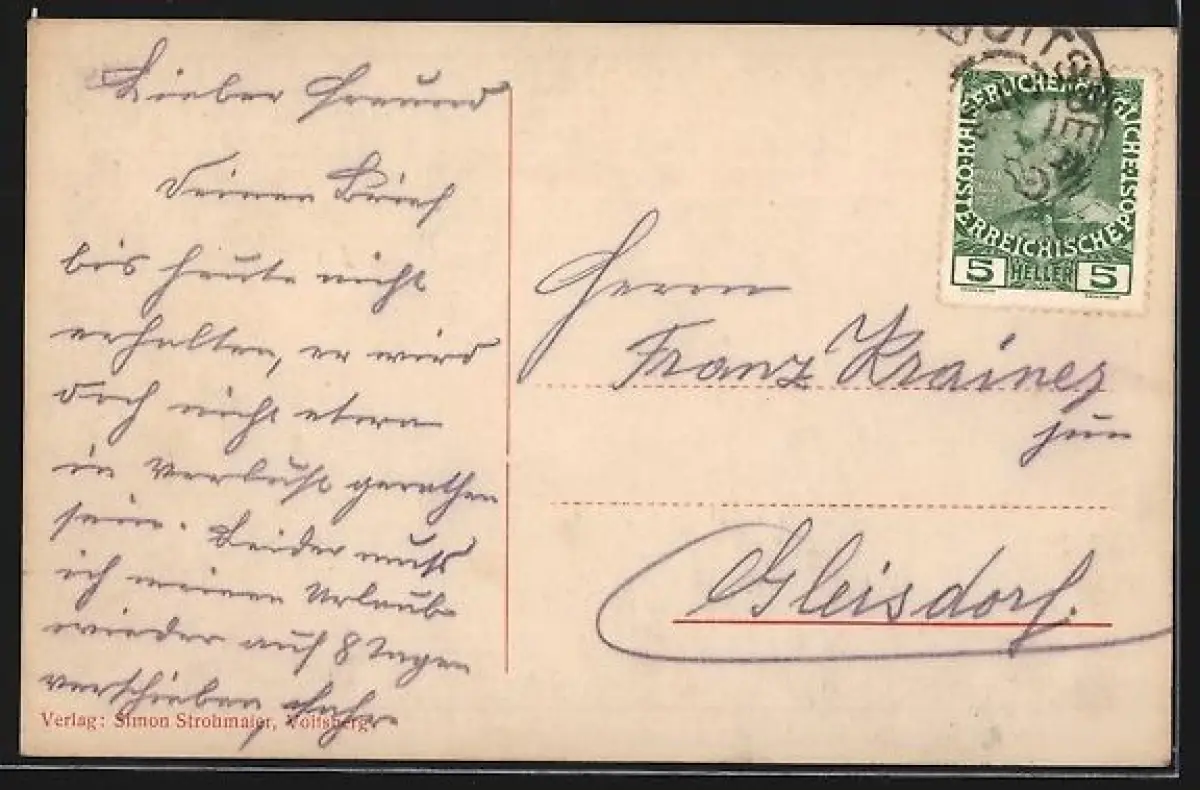 Lieber Freund
Deinen Brief
bis heute nicht
erhalten, er wird
doch nicht etwa
in Verlust gerathen
sein. Leider muß
ich meinen Urlaub
wieder auf 8 Tagen
verschieben
Verlag: Simon Strohmaier, Voitsberg.
VOITSBERG
KAISERLICHE KÖNIGLICHE
ÖSTERREICHISCHE POST
5 HELLER 5
Herrn
Franz Krainer
jun
Gleisdorf.